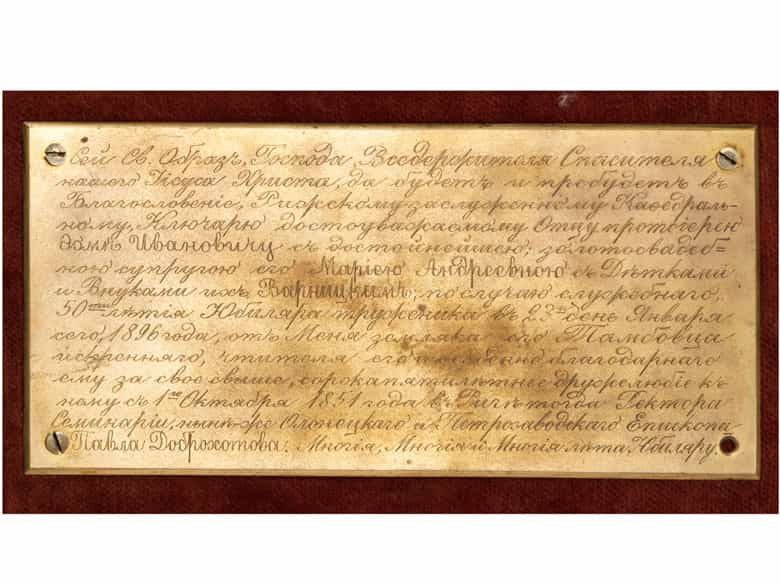 Сей Св. Образъ, Господа, Вседержителя Спасителя
нашего Іисуса Христа, да будетъ и пребудетъ въ
Благословеніе, Рижскому заслуженному Кафедраль-
ному, Ключарю достоуважаемому Отцу протоіерею
Ивановичу съ достойнейшею, золотосвадеб=
ною супругою его Маріею Андреевною съ Дѣтками
и Внуками ихъ Варницкимъ, по случаю служебнаго,
50тилѣтія Юбиляра труженика въ 23й день Января
сего, 1896 года, отъ Меня земляка его Тамбовца
искренняго, чтителя его и особенно благодарнаго
ему за свое свыше, сорокапятилѣтнее дружелюбіе къ
нему съ 1го Октября 1851 года въ Ригѣ тогда Ректора
Семинаріи, нынѣ же Олонецкаго и Петрозаводскаго Епископа
Павла Доброхотова. Многія, Многія и Многія лѣта Юбиляру.